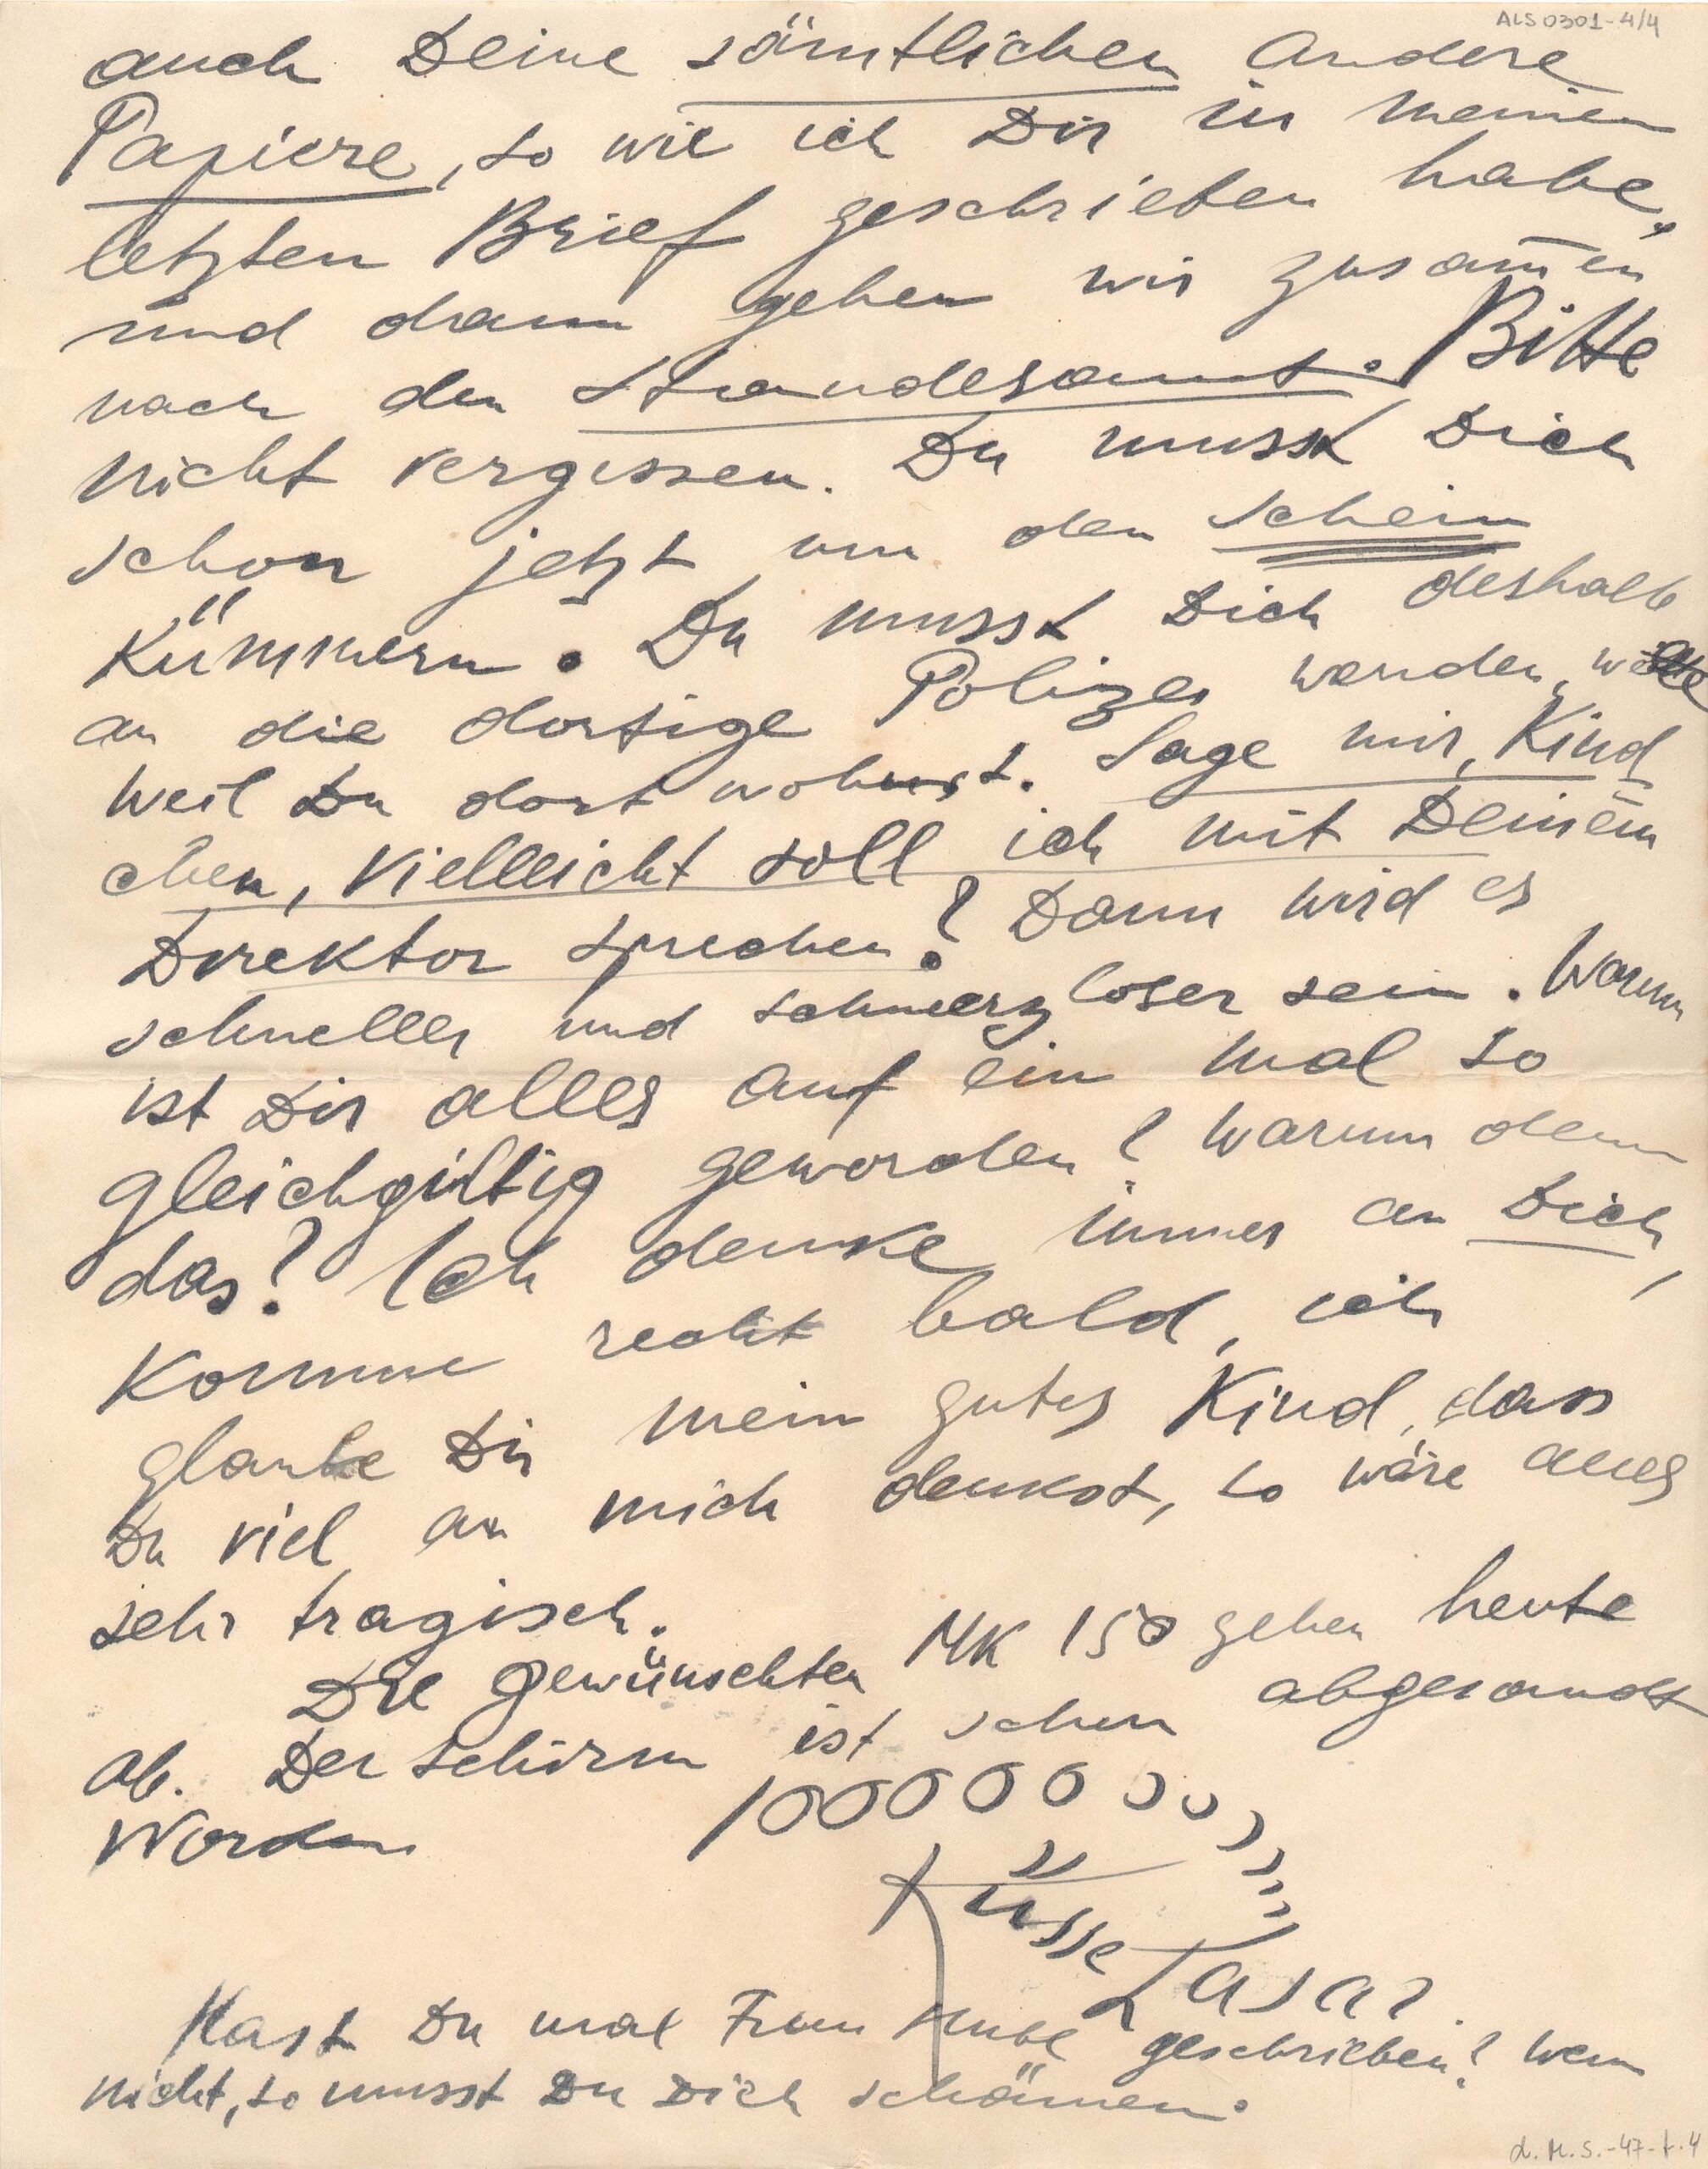 ALS0301-4/4
auch Deine sämtlichen andere
Papiere, so wie ich Dir in meinen
letzten Brief geschrieben habe,
und dann gehen wir zusam̄en
nach den Standesamt. Bitte
nicht vergessen. Du musst Dich
schon jetzt um den Schein
kümmern. Du musst Dich deshalb
an die dortige Polizei wenden,
weil Du dort wohnst. Sage mir, Kind
chen, vielleicht soll ich mit Deinem
Direktor sprechen? Dann wird es
schneller und schmerzloser sein. Warum
ist Dir alles auf ein mal so
gleichgültig geworden? Warum denn
das? Ich denke immer an Dich,
komme recht bald, ich
glaube Dir mein gutes Kind, dass
Du viel an mich denkst, so wäre alles
sehr tragisch.
Die gewünschten MK 150 gehen heute
ab. Der Schirm ist schon abgesandt
worden
10000000
Küsse Lasar
Hast Du mal Frau geschrieben? Wenn
nicht, so musst Du Dich schämen.
d. M. S.-47-f.4